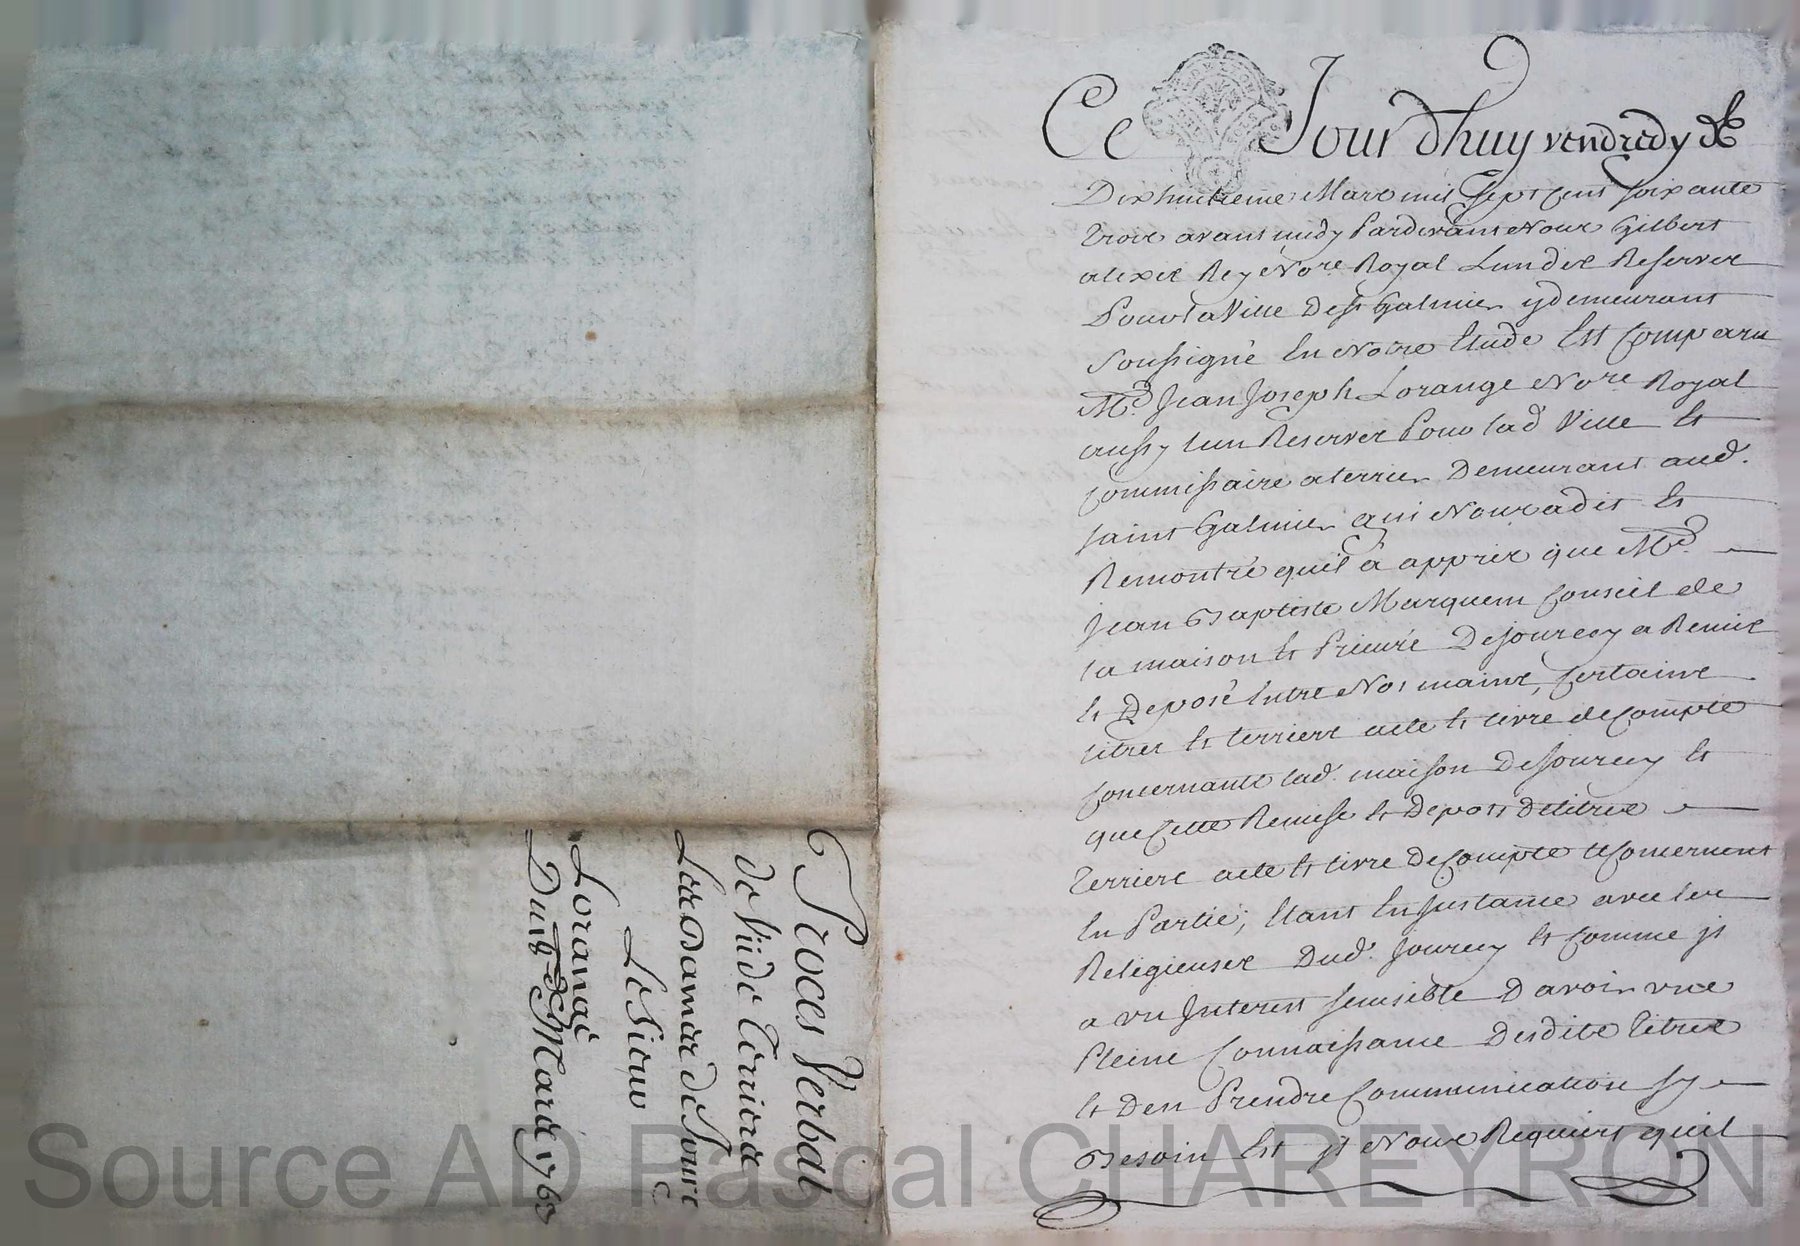 Procès Verbal
de Viüde Terriere
Les Dames de Jource
Le Sieur
Lorange
Du 18e Mars 1763
Ce Jour dhuy vendredy
Dixhuitieme Mars mil sept cent soixante
trois avant midy Pardevant Nous Gilbert
alexis Rey Nore Royal Lun des Reserves
Pour la Ville De st Galmier y demeurant
soussigné En Notre Etude Est Comparu
Me Jean Joseph Lorange Nore Royal
aussy lun Reserves Pour lad Ville Et
Commissaire a terrier Demeurant aud.
saint Galmier qui Nous a dit Et
Remontré quil a appris que Me
Jean Baptiste Marquem Conseil de
la maison Et Prieuré De Jourcey a Remis
Et Deposé Entre Nos mains, Certains
titres Et terriers acte Et livre de Compte
Concernants lad. maison De Jourcey Et
que Cette Remise Et Depost De titres
terriers acte Et livre De Compte le Concernent
En Partie, Etant En Instance avec les
Religieuses Dud. Jourcey Et Comme Il
a un Interest sensible D'avoir une
Pleine Connaissance Desdits titres
Et Den Prendre Communication sy
Besoin Est Il Nous Requiert quil
Source AD Pascal CHAREYRON